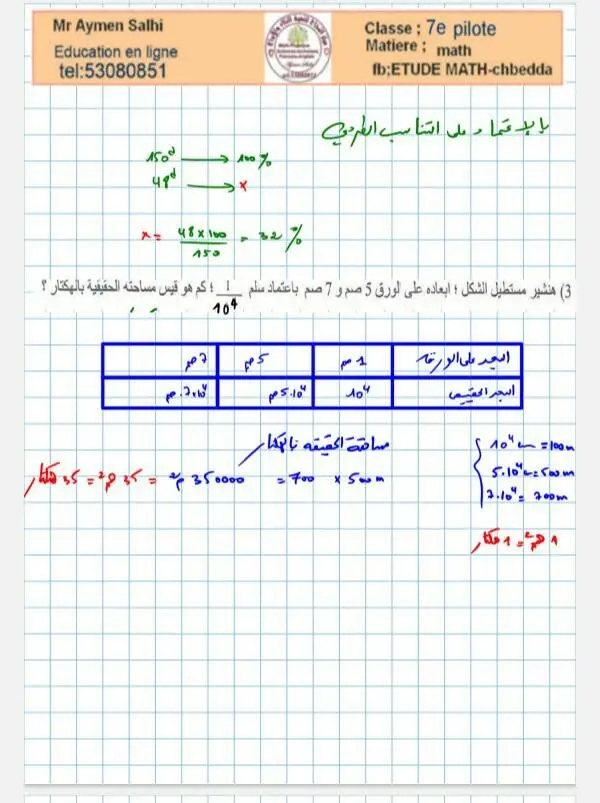 Mr Aymen Salhi
Education en ligne
tel:53080851
Classe ; 7e pilote
Matiere ; math
fb;ETUDE MATH-chbedda
بالاعتماد على التناسب الطردي
150ᵈ → 100 %
48ᵈ → x
x = 48 x 100 / 150 = 32 %
3) هنشير مستطيل الشكل ؛ ابعاده على الورق 5 صم و 7 صم باعتماد سلم 1/10⁴ ؛ كم هو قيس مساحته الحقيقية بالهكتار ؟
البعد على الورقة 1 صم 5 صم 7 صم
البعد الحقيقي 10⁴ 5.10⁴ صم 7×10⁴ صم
مساحة الحقيقة بالهكتار
10⁴ cm = 100m
5.10⁴ = 500 m
7.10⁴ = 700m
500m × 700 = 350000 م² = 35 هم² = 35 هكتار
1 هم² = 1 هكتار